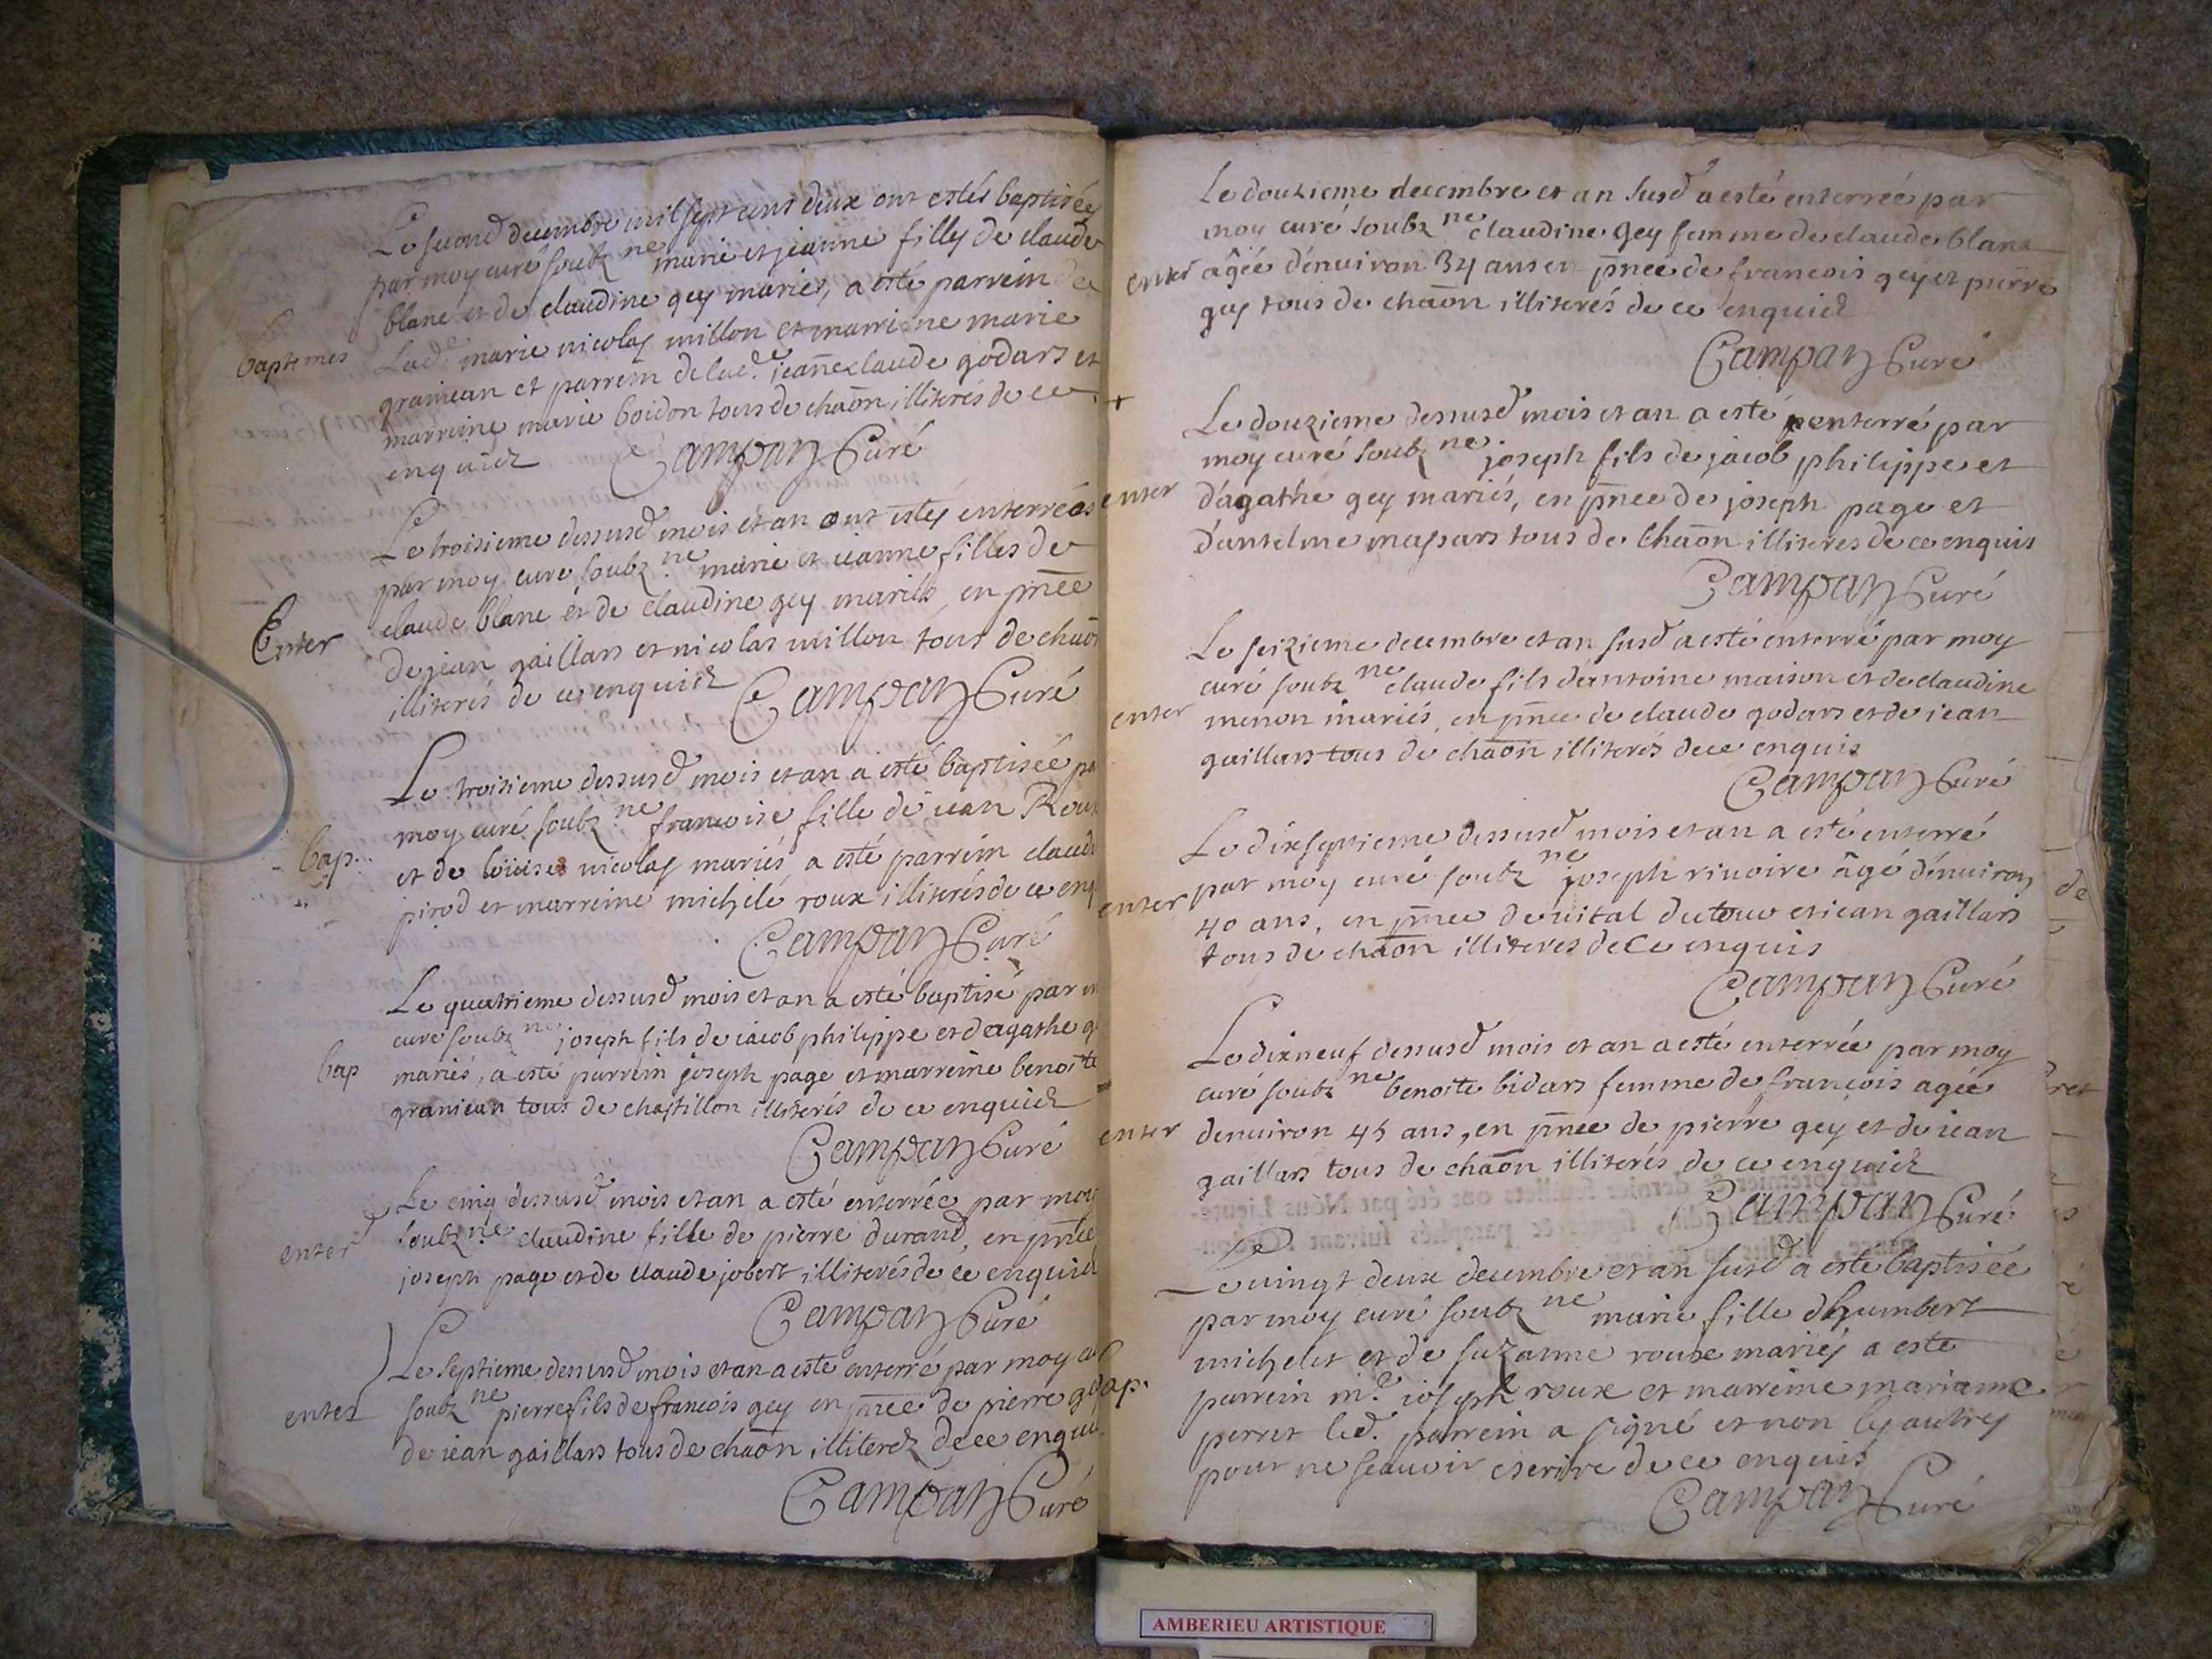 Le second decembre mil sept cens deux ont estés baptisés
par moy curé soubz ne marie et jeanne filles de claude
blanc et de claudine gey mariés, a esté parrein de
baptemes
Lad.e marie nicolas millon et marreine marie
graniean et parrein de lad.e ieanne claude godars et
marreine marie boidon tous de chaōn illiterés de ce
enquiez Campan Curé
Le troisieme dessusd mois et an ont estés enterrées
par moy curé soubz ne marie et ieanne filles de
claude blanc et de claudine gey mariés en pñce
Enter
de jean gaillars et nicolas millon tous de chaōn
illiterés de ce enquiez Campan Curé
Le troisieme dessusd mois et an a esté baptisée
moy curé soubz ne francoise fille de iean Roux
bap.
et de louise nicolas mariés a esté parrein claude
pirod et marreine michele roux illiterés de ce enq
Campan Curé
Le quatrieme dessusd mois et an a esté baptisé par
curé soubz ne joseph fils de iacob philippe et dagathe
bap
mariés, a esté parrein joseph page et marreine benoite
graniean tous de chastillon illiterés de ce enquiez
Campan Curé
Le cinq dessusd mois et an a esté enterrée par moy
enter
soubz ne claudine fille de pierre durand, en pñce
joseph page et de claude jobert illiterés de ce enquiez
Campan Curé
Le septieme dessusd mois et an a esté enterré par moy
enter
soubz ne pierre fils de francois gey en pñce de pierre
de iean gaillars tous de chaōn illiterez de ce enquis
Campan Curé
Le douzieme decembre et an susd a esté enterrée par
moy curé soubz ne claudine gey femme de claude blanc
enter
agée dénuiron 34 ans en pñce de francois gey et pierre
gey tous de chaōn illiterés de ce enquiez
Campan Curé
+
Le douzieme dessusd mois et an a esté enterré par
moy curé soubz ne joseph fils de jacob philippe et
enter
d'agathe gey mariés, en pñce de joseph page et
d'antelme massars tous de chaōn illiteres de ce enquis
Campan Curé
Le seizieme decembre et an susd a esté enterré par moy
curé soubz ne claude fils déantoine maison et de claudine
enter
menon mariés, en pñce de claude godars et de iean
gaillars tous de chaōn illiterés de ce enquis
Campan Curé
Le dixseptieme dessusd mois et an a esté enterré
par moy curé soubz ne joseph riuoire agé dénuiron
enter
40 ans, en pñce de uital dutour et iean gaillars
tous de chaōn illiteres de ce enquis
Campan Curé
Le dixneuf dessusd mois et an a esté enterrée par moy
curé soubz ne benoite bidars femme de françois agée
enter
denuiron 45 ans, en pñce de pierre gey et de iean
gaillars tous de chaōn illiterés de ce enquiez
Campan Curé
Le uingt deux decembre et an susd a esté baptisée
par moy curé soubz ne marie fille dhumbert
michelet et de suzanne roux mariés a esté
bap.
parrein m.e ioseph roux et marreine marianne
perret led. parrein a signé et non les autres
pour ne scauoir escrire de ce enquis
Campan Curé
AMBERIEU ARTISTIQUE